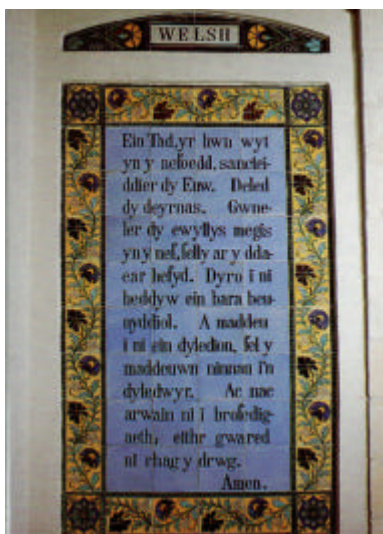 WELSH
Ein Tad, yr hwn wyt
yn y nefoedd, sanctei-
ddier dy Enw. Deled
dy deyrnas. Gwne-
ler dy ewyllys megis
yn y nef, felly ar y dda-
ear hefyd. Dyro i ni
heddyw ein bara beu-
nyddiol. A maddeu
i ni ein dyledion, fel y
maddeuwn ninnau i'n
dyledwyr. Ac nac
arwain ni i brofedig-
aeth, eithr gwared
ni rhag y drwg.
Amen.